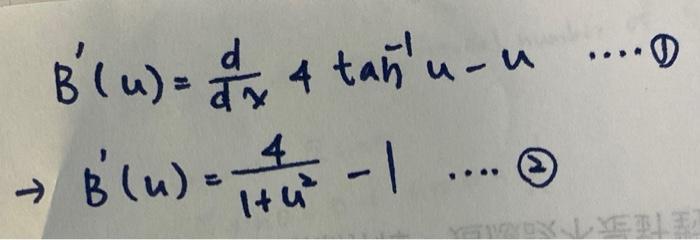 B'(u) = d/dx 4 tan⁻¹ u - u ....①
→ B'(u) = 4/(1+u²) - 1 ....②